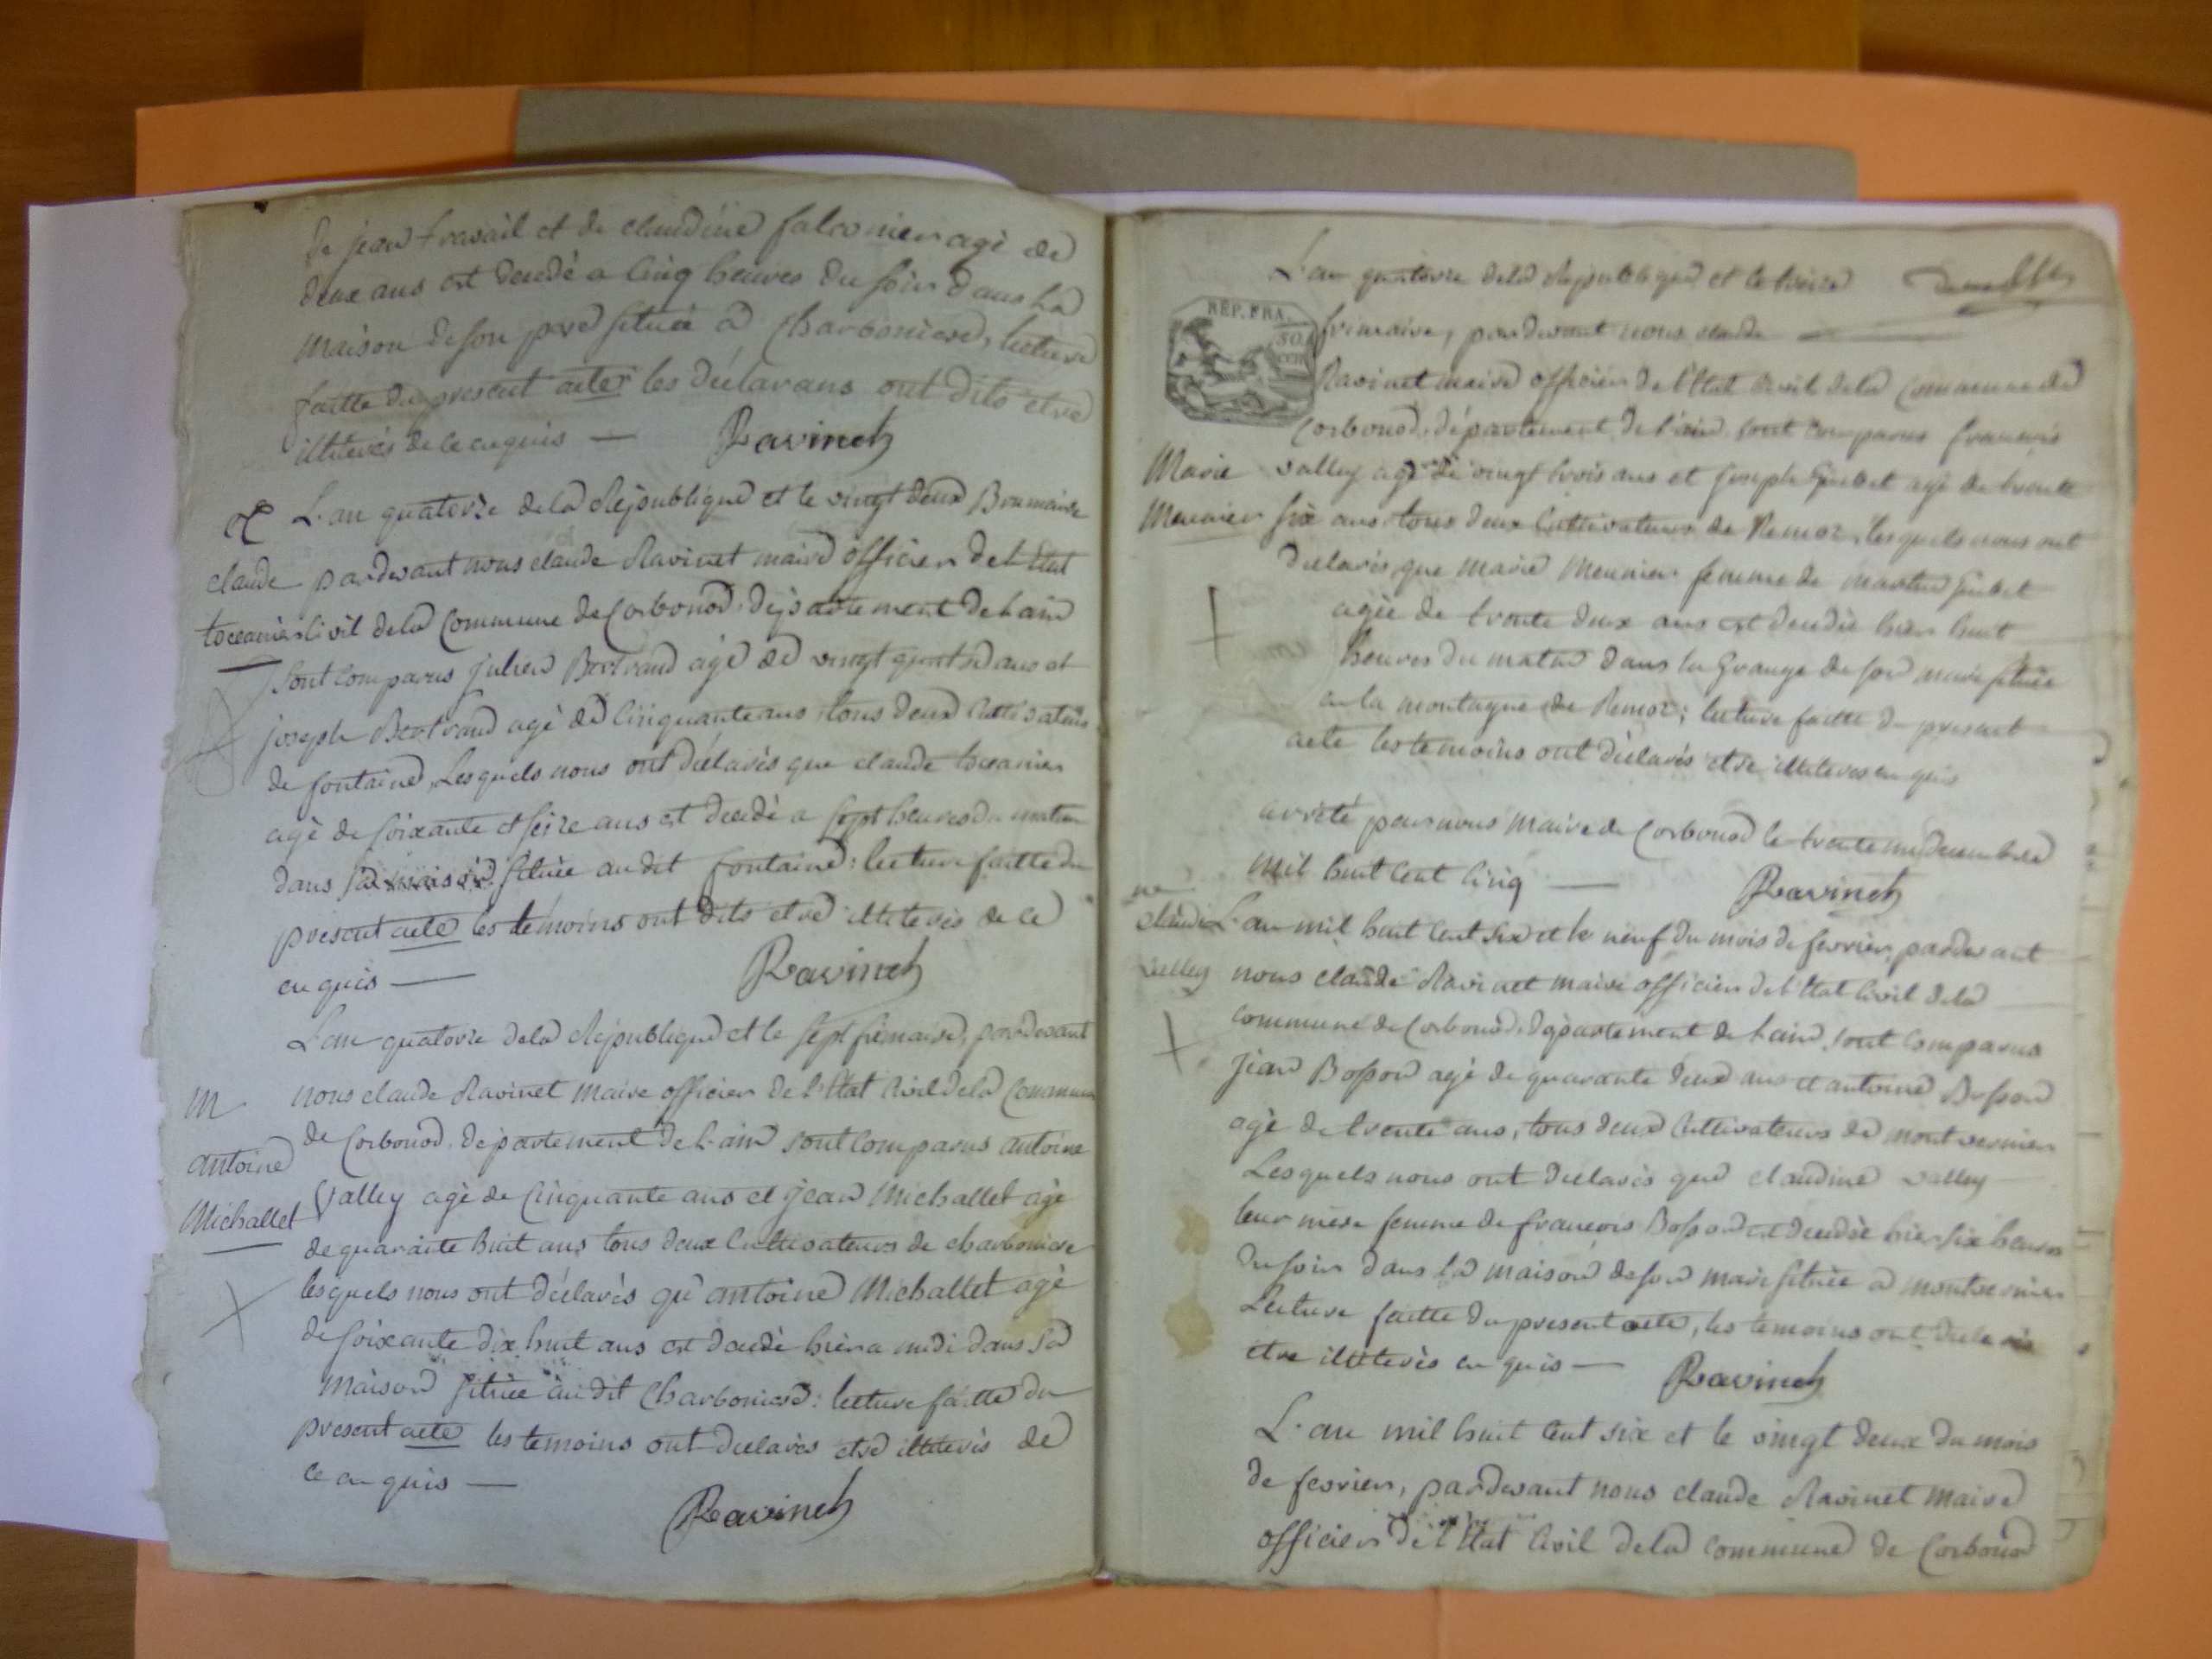 de jean travail et de claudine falconier agè de
deux ans est decedé a cinq heures du soir dans la
maison de son pere situèe a Charboniere, lecture
faitte du present acte les déclarans ont dits etre
illiterès de ce enquis — Ravinet
L'an quatorze de la Republique et le vingt deux Brumaire
claude pardevant nous claude Ravinet maire officier de l'Etat
tocanier civil de la Commune de Corbonod, departement de l'ain
sont comparus julien Bertrand agé de vingt quatre ans et
joseph Bertrand agè de Cinquante ans, tous deux cultivateurs
de fontaine, Lesquels nous ont déclarès que claude tocanier
agè de soixante et seize ans est decedè a sept heures du matin
dans sa maison situèe au dit fontaine: lecture faitte du
present acte les temoins ont dits etre illiterés de ce
enquis — Ravinet
L'an quatorze de la Republique et le sept frimaire, pardevant
M nous claude Ravinet maire officier de l'Etat Civil de la Commune
de Corbonod, departement de l'ain sont comparus antoine
antoine
Michallet Valley agè de Cinquante ans et jean Michallet agè
de quarante huit ans tous deux Cultivateurs de charboniere
lesquels nous ont déclarès qu'antoine Michallet agè
de soixante dix huit ans est decedè hier a midi dans sa
maison situèe au dit Charboniere: lecture faitte du
present acte les temoins ont declarès etre illiterés de
ce enquis —
Ravinet
L'an quatorze de la Republique et le treize
REP. FRA.
50
CEN
frimaire, pardevant nous claude
Ravinet maire officier de l'Etat Civil de la Commune de
Corbonod, département de l'ain, sont comparus francois
Marie valley agè de vingt trois ans et joseph Gubet agè de trente
Meunier six ans tous deux Cultivateurs de Remoz, lesquels nous ont
declarès que marie Meunier femme de martin Gubet
agèe de trente deux ans est decedèe hier huit
heures du matin dans la Grange de son mari situèe
en la montagne de Remoz; lecture faitte du present
acte les temoins ont déclarès etre illiteres enquis
arrèté par nous Maire de Corbonod le trente un decembre
mil huit cent cinq — Ravinet
ne
claudi L'an mil huit cent six et le neuf du mois de fevrier, pardevant
valley nous claude Ravinet maire officier de l'Etat Civil de la
commune de Corbonod, departement de l'ain, sont comparus
jean Bosson agè de quarante deux ans et antoine Bosson
agè de trente ans, tous deux Cultivateurs de mont vernier
Lesquels nous ont declarès que claudine valley
leur mere femme de francois Bosson est decedèe hier six heures
du soir dans la maison de son mari situèe a montvernier
Lecture faitte du present acte, les temoins ont declarès
etre illiterès enquis — Ravinet
L'an mil huit cent six et le vingt deux du mois
de fevrier, pardevant nous claude Ravinet maire
officier de l'Etat Civil de la commune de Corbonod